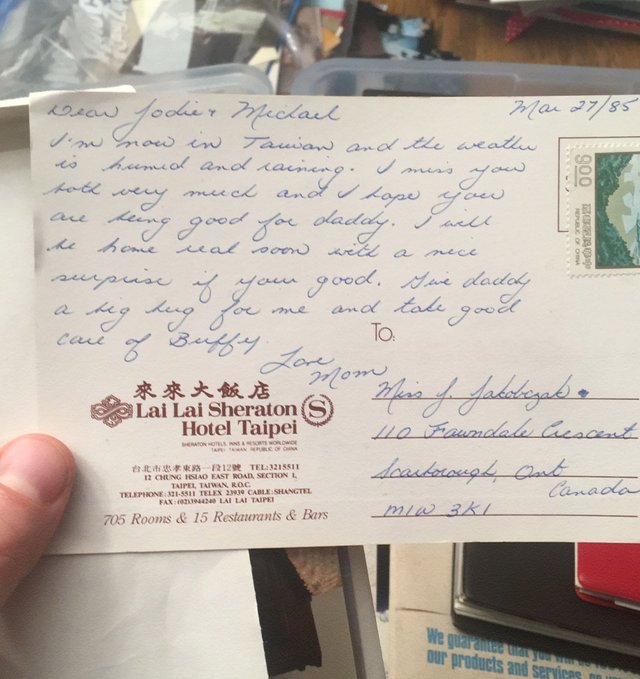 Dear Jodie & Michael
Mar 27/85
I'm now in Taiwan and the weather
is humid and raining. I miss you
both very much and I hope you
are being good for daddy. I will
be home real soon with a nice
surprise if your good. Give daddy
a big hug for me and take good
care of Buffy.
Love
Mom
900
REPUBLIC OF CHINA
To:
Miss J. Jakobczak
110 Fawndale Crescent
Scarborough, Ont
Canada
M1W 3K1
來來大飯店
Lai Lai Sheraton
Hotel Taipei
S
SHERATON HOTELS, INNS & RESORTS WORLDWIDE
TAIPEI TAIWAN REPUBLIC OF CHINA
台北市忠孝東路一段12號 TEL:3215511
12 CHUNG HSIAO EAST ROAD, SECTION 1,
TAIPEI, TAIWAN, R.O.C.
TELEPHONE:321-5511 TELEX 23939 CABLE:SHANGTEL
FAX:(02)3944240 LAI LAI TAIPEI
705 Rooms & 15 Restaurants & Bars
We guarantee that you will
our products and services,